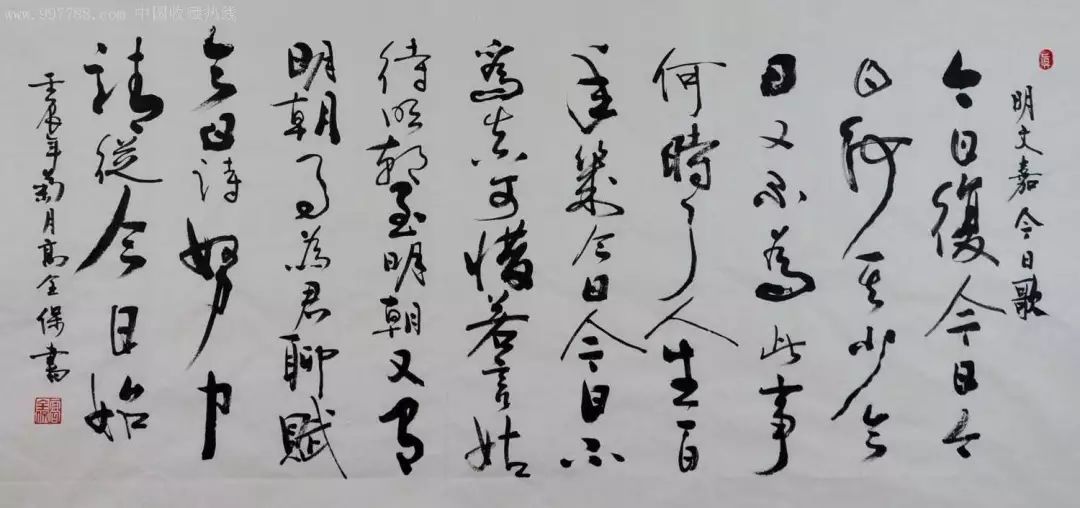 www.997788.com 中国收藏热线
明文嘉今日歌
今日復今日今
日何其少今
日又不為此事
何時了人生百
年幾今日今日不
爲真可惜若言姑
待明朝至明朝又有
明朝事為君聊賦
今日詩努力
請從今日始
壬辰年菊月高全保書